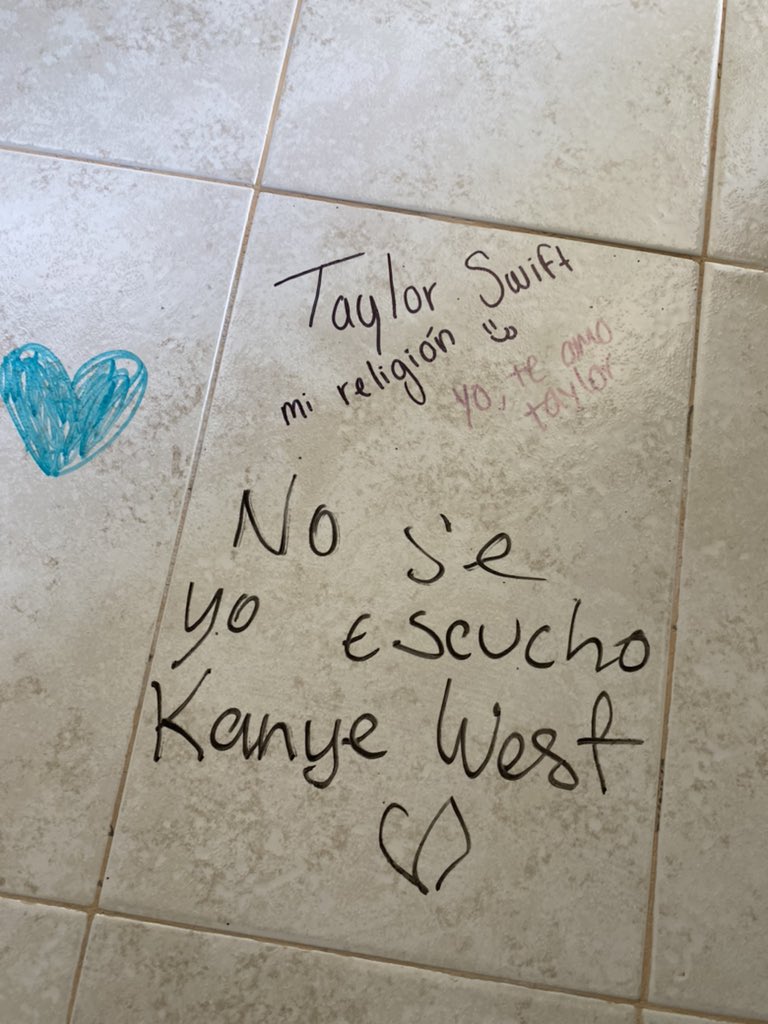 Taylor Swift
mi religión
yo, te amo
taylor
No sé
yo escucho
Kanye West